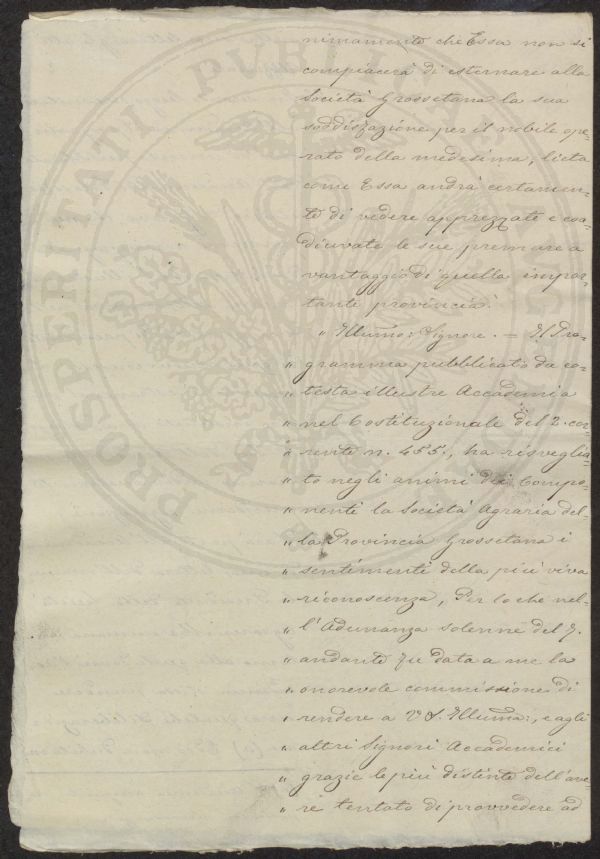 nimamente che Essa non si
compiacerà di esternare alla
Società Grossetana la sua
soddisfazione per il nobile ope-
rato della medesima, lieta
come Essa andrà certamen-
te di vedere apprezzate e coa-
diuvate le sue premure a
vantaggio di quella impor-
tante provincia.
" Illumo: Signore. = Il Pro-
" gramma pubblicato da co-
" testa illustre Accademia
" nel Costituzionale del 2. cor-
" rente n. 455., ha risveglia-
" to negli animi dei Compo-
" nenti la Società Agraria del-
" la Provincia Grossetana i
" sentimenti della più viva
" riconoscenza, Per lo che nel-
" l'Adunanza solenne del 7.
" andante fu data a me la
" onorevole commissione di
" rendere a V. S. Illuma:, e agli
" altri Signori Accademici
" grazie le più distinte dell'ave-
" re tentato di provvedere ad
PROSPERITATI PUBLICAE